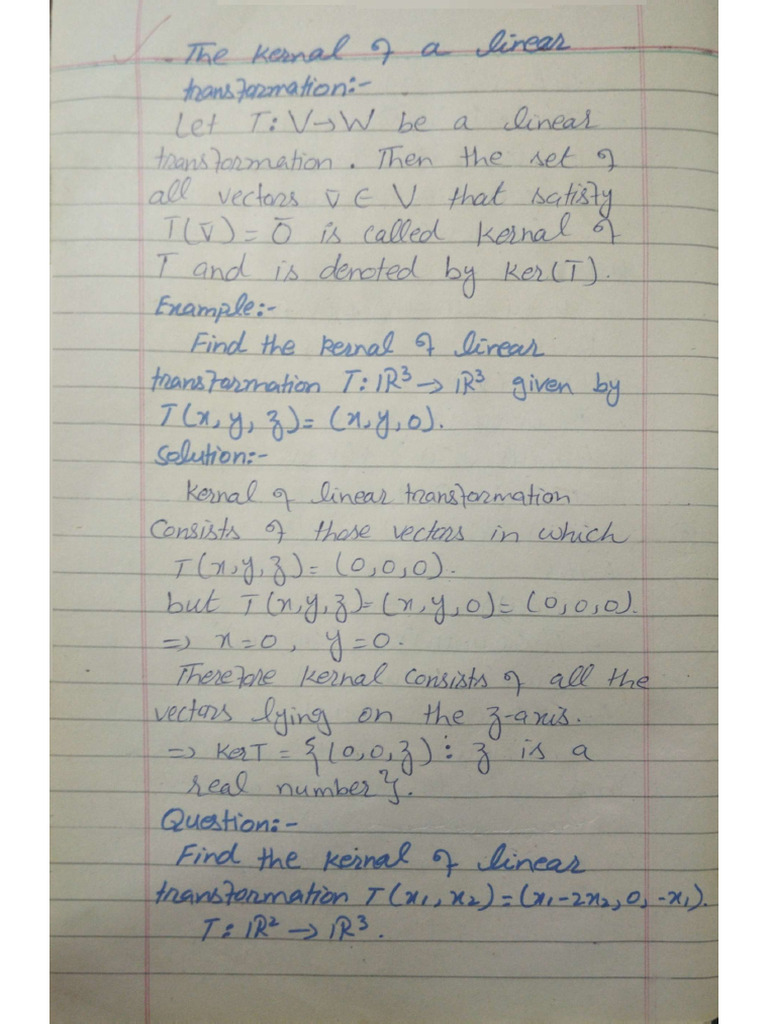 The kernal of a linear
transformation:-
Let T: V→W be a linear
transformation. Then the set of
all vectors v̄ ∈ V that satisfy
T(v̄) = ō is called kernal of
T and is denoted by Ker(T).
Example:-
Find the kernal of linear
transformation T: IR³ → IR³ given by
T(x, y, z) = (x, y, 0).
Solution:-
Kernal of linear transformation
Consists of those vectors in which
T(x, y, z) = (0, 0, 0).
but T(x, y, z) = (x, y, 0) = (0, 0, 0).
⇒ x = 0, y = 0.
Therefore kernal consists of all the
vectors lying on the z-axis.
⇒ KerT = {(0, 0, z) : z is a
real number}.
Question:-
Find the kernal of linear
transformation T(x₁, x₂) = (x₁-2x₂, 0, -x₁).
T: IR² → IR³.